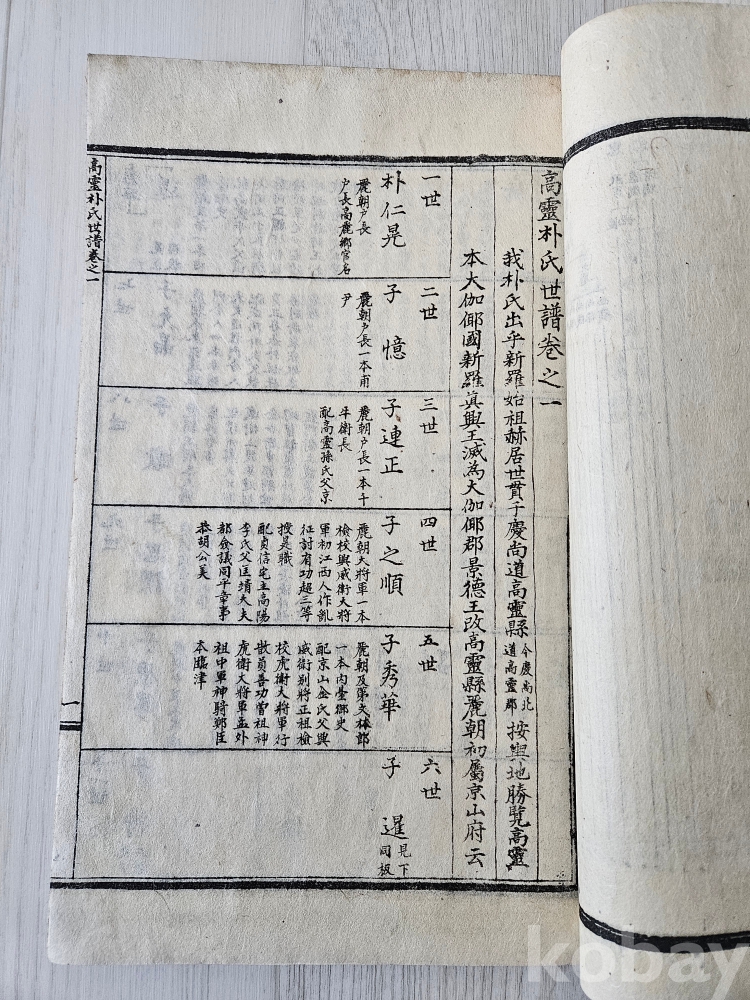 高靈朴氏世譜卷之一
我朴氏出乎新羅始祖赫居世貫于慶尚道高靈縣今慶尚北道高靈郡按輿地勝覽高靈
本大伽倻國新羅眞興王滅為大伽倻郡景德王改高靈縣麗朝初屬京山府云
一世
朴仁晃
麗朝戶長
戶長高麗鄉官名
二世
子 憶
麗朝戶長一本甫
尹
三世
子 連正
麗朝戶長一本千
牛衛長
配高靈孫氏父京
四世
子之順
麗朝大將軍一本
檢校興威衛大將
軍初江西人作亂
征討有功超三等
授是職
配貞信宅主高陽
李氏父匡靖大夫
都僉議同平章事
恭胡公美
五世
子秀華
麗朝及第文林郎
一本內臺御史
配京山金氏父興
威衛別將正祖檢
校虎衛大將軍行
散員善功曾祖神
虎衛大將軍孟外
祖中軍神騎鄭臣
本臨津
六世
子 暹
見下
同板
高靈朴氏世譜卷之一
一
kobay